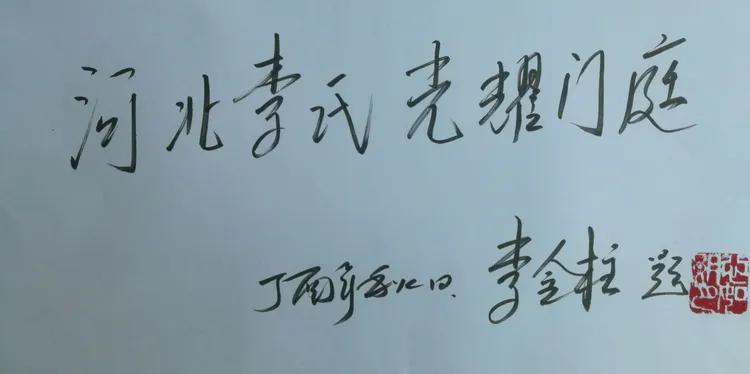 河北李氏光耀门庭
丁酉年秋日 李金柱 题